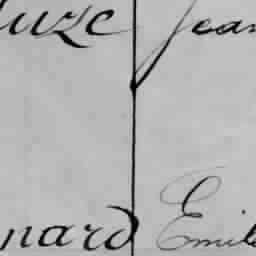 uze Jean
nard Emile